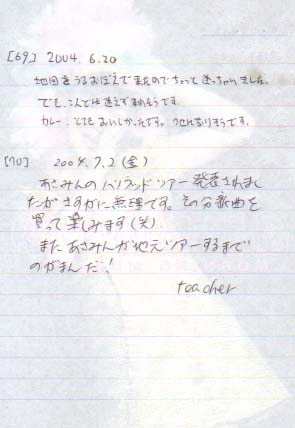 [69] 2004.6.20
地図をうるおぼえで来たのでちょっと迷っちゃいました。
でも、こんどは迷えずまれそうです。
カレー、とてもおいしかったです。クセになりそうです。
[70] 2004.7.2(金)
あさみんのハワランドツアー発表されまし
たがさすがに無理です。その分新曲を
買って楽しみます(笑)
またあさみんが地元ツアーするまで
のがまんだ!
teacher